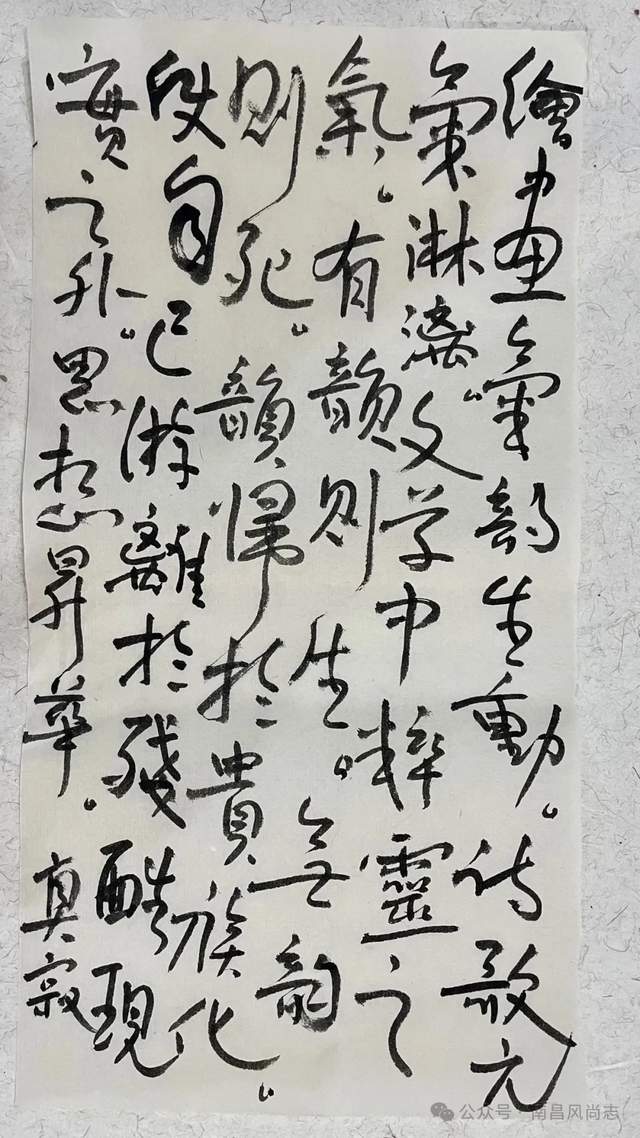 繪畫氣韵生動。诗歌元
氣淋漓。文学中粹靈之
氣。有韻則生。無韵
則死。韻歸於貴族化。
使自己游離於殘酷現
實之外。思想昇華。真寂
公众号·南昌风尚志